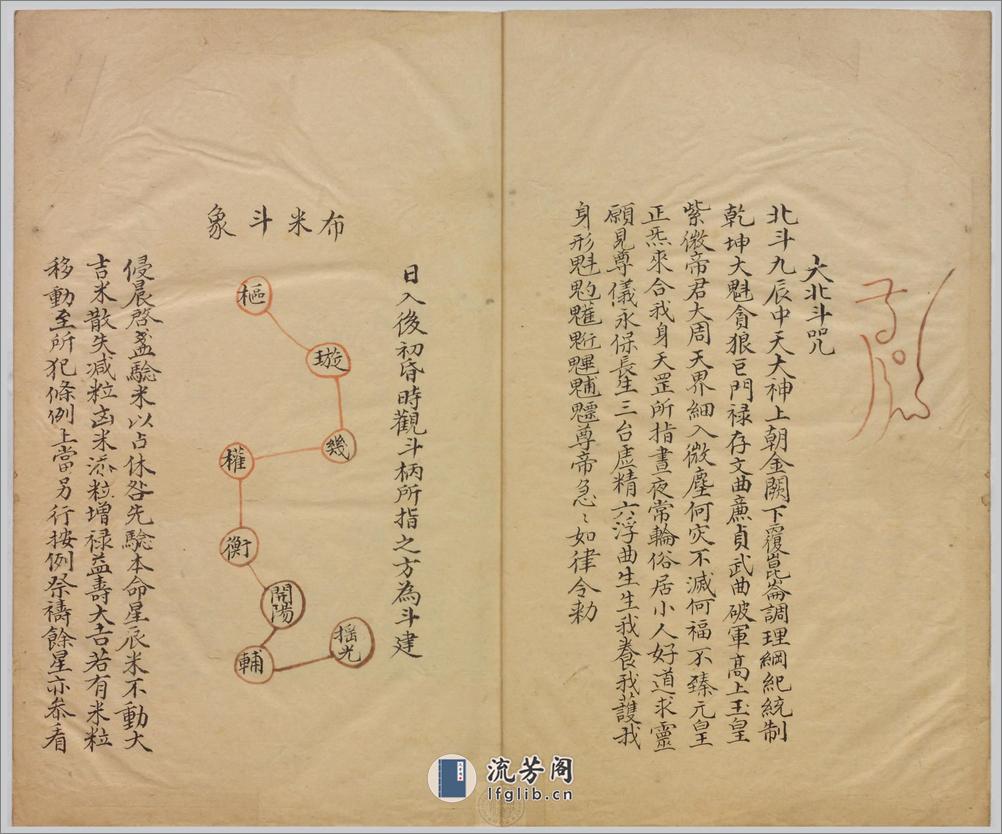 大北斗咒
北斗九辰中天大神上朝金闕下覆崑崙調理綱紀統制
乾坤大魁貪狼巨門禄存文曲廉貞武曲破軍高上玉皇
紫微帝君大周天界細入微塵何灾不滅何福不臻元皇
正炁來合我身天罡所指晝夜常輪俗居小人好道求靈
願見尊儀永保長生三台虛精六浮曲生生我養我護我
身形魁𩲃魓䰢魒尊帝急〻如律令勑
日入後初昏時觀斗柄所指之方為斗建
布米斗象
樞
璇
幾
權
衡
開陽
輔
揺光
侵晨啓盞驗米以占休咎先驗本命星辰米不動大
吉米散失减粒凶米添粒增禄益壽大吉若有米粒
移動至所犯條例上當另行按例祭禱餘星亦叅看
流芳阁
lfglib.cn